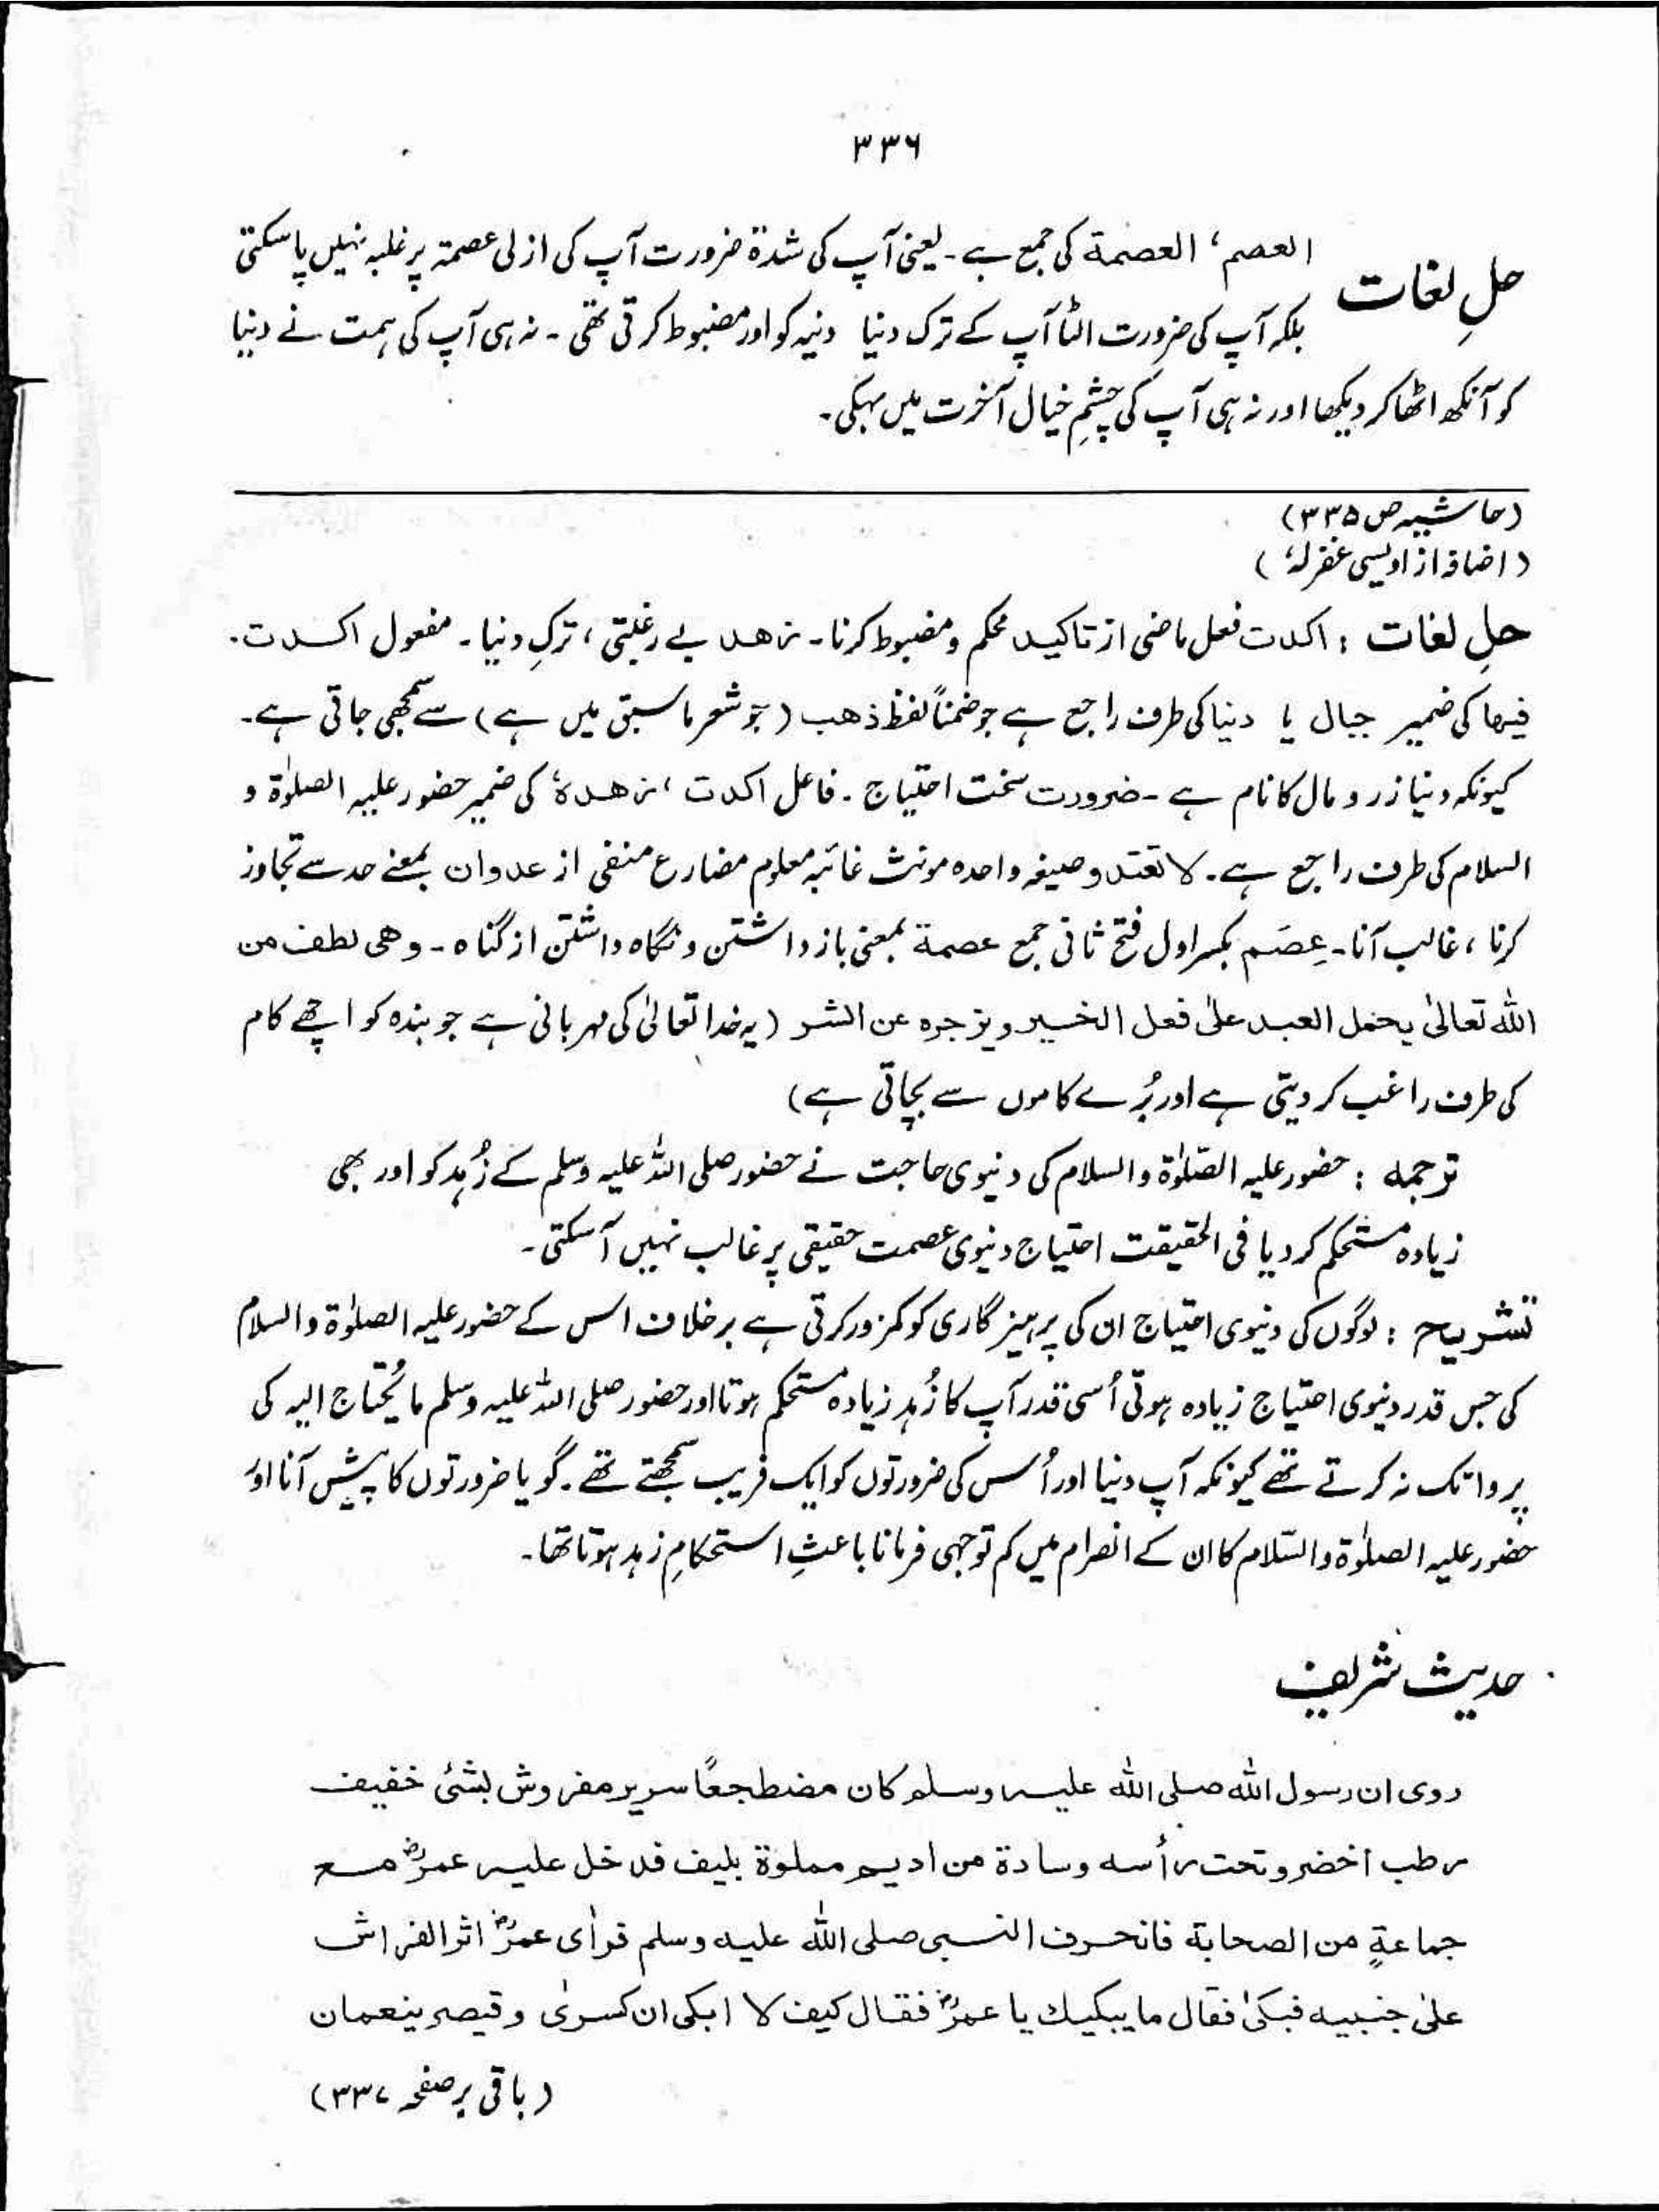 ۳۳۶
حلِ لغات العصم، العصمة کی جمع ہے۔ یعنی آپ کی شدۃ ضرورت آپ کی ازلی عصمۃ پر غلبہ نہیں پا سکتی
بلکہ آپ کی ضرورت الٹا آپ کے ترک دنیا دنیہ کو اور مضبوط کرتی تھی ۔ نہ ہی آپ کی ہمت نے دنیا
کو آنکھ اٹھا کر دیکھا اور نہ ہی آپ کی چشمِ خیال آخرت میں بہکی۔
(حاشیہ ص ۳۳۵)
(اضافہ از اویسی غفرلہٗ)
حلِ لغات : اکدت فعل ماضی از تاکید محکم و مضبوط کرنا۔ زھد بے رغبتی، ترکِ دنیا۔ مفعول اکدت۔
فیھا کی ضمیر جبال یا دنیا کی طرف راجع ہے جو ضمناً لفظ ذھب (جو شعر ماسبق میں ہے) سے سمجھی جاتی ہے۔
کیونکہ دنیا زر و مال کا نام ہے ۔ ضرورت سخت احتیاج ۔ فاعل اکدت، زھدہٗ کی ضمیر حضور علیہ الصلوٰۃ و
السلام کی طرف راجع ہے۔ لا تعتدو صیغہ واحدہ مونث غائبہ معلوم مضارع منفی از عدوان بمعنے حد سے تجاوز
کرنا، غالب آنا۔ عِصَم بکسر اول فتح ثانی جمع عصمة بمعنی باز داشتن و نگاہ داشتن از گناہ ۔ وھی لطف من
اللہ تعالیٰ یحمل العبد علیٰ فعل الخیر ویزجرہ عن الشر (یہ خدا تعالیٰ کی مہربانی ہے جو بندہ کو اچھے کام
کی طرف راغب کر دیتی ہے اور بُرے کاموں سے بچاتی ہے)
ترجمہ : حضور علیہ الصّلوٰۃ والسلام کی دنیوی حاجت نے حضور صلی اللہ علیہ وسلم کے زُہد کو اور بھی
زیادہ مستحکم کر دیا فی الحقیقت احتیاج دنیوی عصمت حقیقی پر غالب نہیں آ سکتی۔
تشریح : لوگوں کی دنیوی احتیاج ان کی پرہیز گاری کو کمزور کرتی ہے برخلاف اس کے حضور علیہ الصلوٰۃ والسلام
کی جس قدر دنیوی احتیاج زیادہ ہوتی اُسی قدر آپ کا زُہد زیادہ مستحکم ہوتا اور حضور صلی اللہ علیہ وسلم ما یُحتاج الیہ کی
پروا تک نہ کرتے تھے کیونکہ آپ دنیا اور اُس کی ضرورتوں کو ایک فریب سمجھتے تھے۔ گویا ضرورتوں کا پیش آنا اور
حضور علیہ الصلوٰۃ والسّلام کا ان کے انصرام میں کم توجہی فرمانا باعثِ استحکامِ زہد ہوتا تھا۔
حدیث شریف
روی ان رسول اللہ صلی اللہ علیہ وسلم کان مضطجعًا سریر مفروش بشئ خفیف
رطب اخضر وتحت رأسه وسادة من ادیم مملوة بلیف فدخل علیه عمرؓ مع
جماعةٍ من الصحابة فانحرف النبی صلی اللہ علیه وسلم فرأی عمرؓ اثر الفراش
علیٰ جنبیه فبکیٰ فقال ما یبکیك یا عمرؓ فقال کیف لا ابکی ان کسریٰ وقیصر ینعمان
(باقی بر صفحہ ۳۳۷)